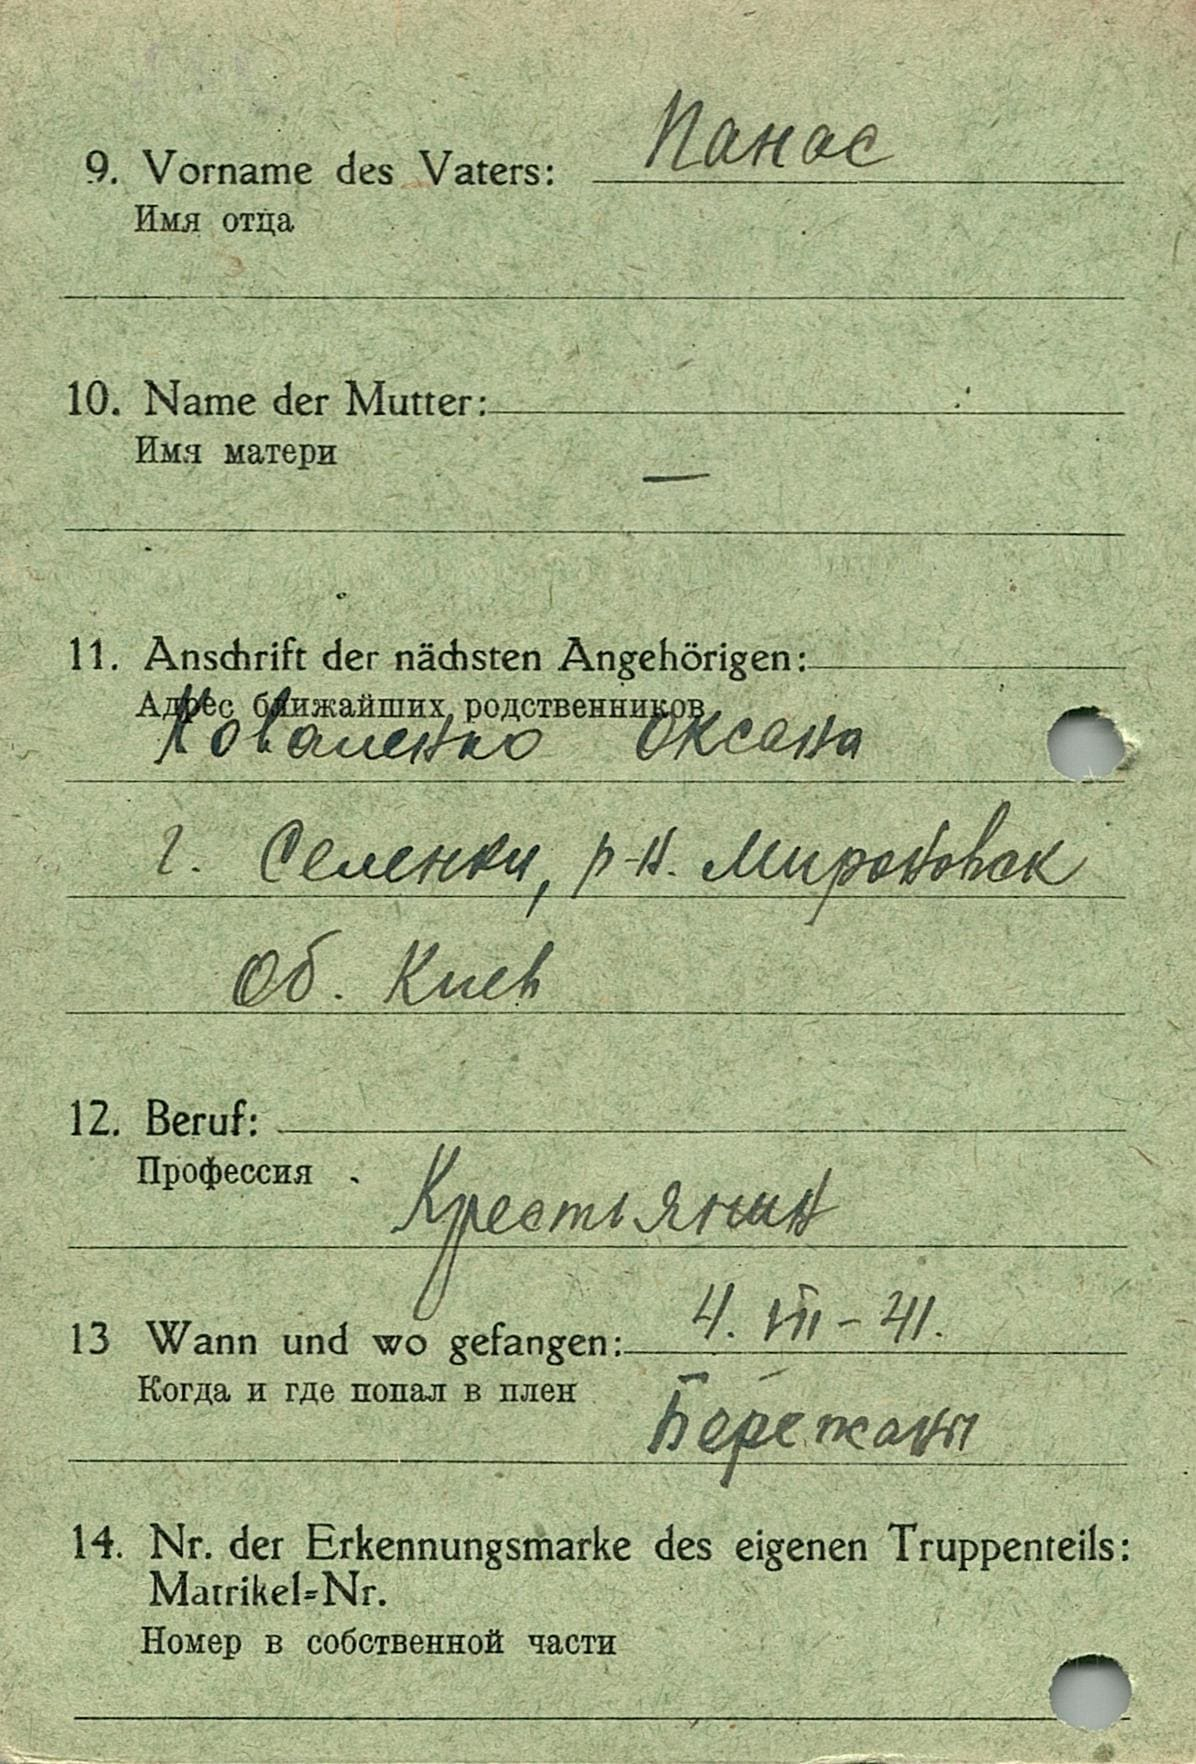 9. Vorname des Vaters: Панас
Имя отца
10. Name der Mutter:
Имя матери
—
11. Anschrift der nächsten Angehörigen:
Адрес ближайших родственников
Коваленко Оксана
г. Селенки, р-н. Мироновск
Об. Киев
12. Beruf:
Профессия
Крестьянин
13 Wann und wo gefangen: 4. VII – 41.
Когда и где попал в плен
Бережаны
14. Nr. der Erkennungsmarke des eigenen Truppenteils:
Matrikel=Nr.
Номер в собственной части